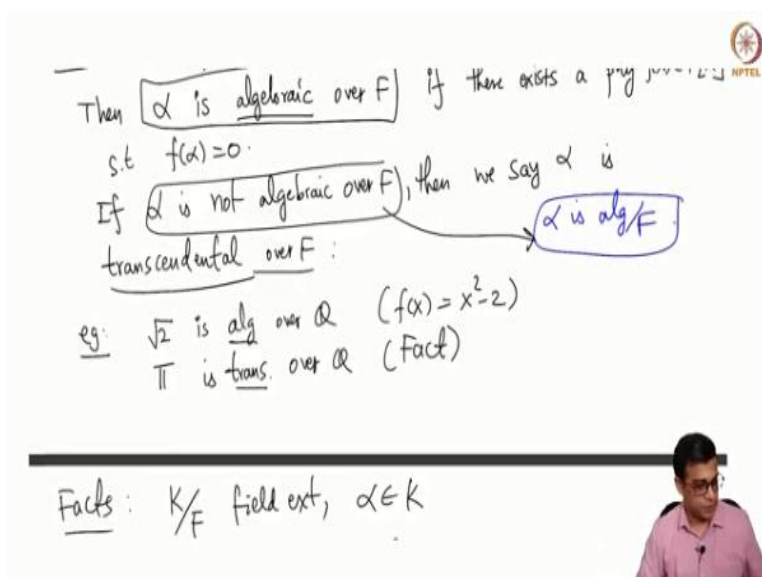 NPTEL
Then α is algebraic over F if there exists a
s.t f(α)=0.
If α is not algebraic over F, then we say α is
transcendental over F:
α is alg/F
eg: √2 is alg over Q (f(x) = x²-2)
π is trans. over Q (Fact)
Facts: K/F field ext, α∈K